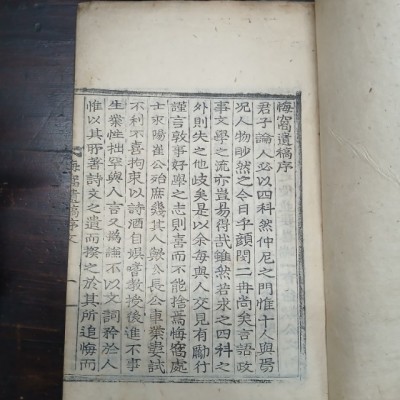 悔窩遺稿序
君子論人必以四科然仲尼之門惟十人與焉
况人物眇然之今日乎顔閔二冉尚矣言語政
事文學之流亦豈易得哉雖然若求之四科之
外則失之他歧矣是以余每與人交見有勵行
謹言敦事好學之志則喜而不能捨焉悔窩處
士宋陽崔公殆庶幾其人與公長公車業妻試
不利不喜拘束以詩酒自娛嘗教授後進不事
生業性拙罕與人言久爲謹不以文詞矜於人
惟以其所著詩文之遺而揆之於其所追悔而
悔窩遺稿序文
一